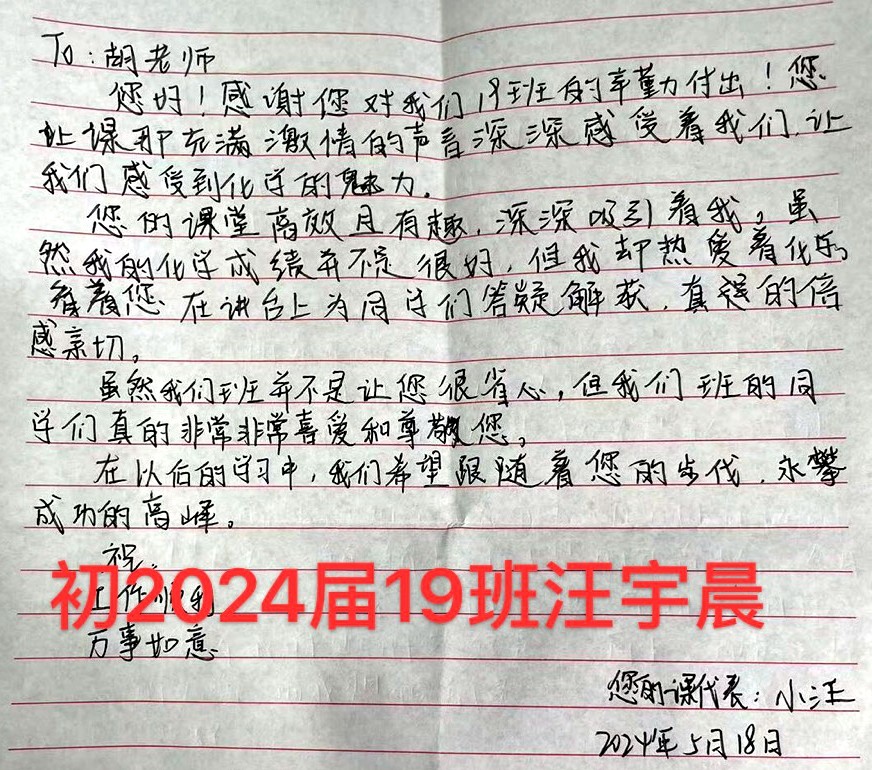 To：胡老师
您好！感谢您对我们19班的辛勤付出！您
让课那充满激情的声音深深感受着我们，让
我们感受到化学的魅力。
您的课堂高效且有趣，深深吸引着我。虽
然我的化学成绩并不是很好，但我却热爱着化学
看着您在讲台上为同学们答疑解惑，真是的倍
感亲切。
虽然我们班并不是让您很省心，但我们班的同
学们真的非常非常喜爱和尊敬您。
在以后的学习中，我们希望跟随着您的步伐，永攀
成功的高峰。
祝：
工作顺利
初2024届19班汪宇晨
万事如意
您的课代表：小汪
2024年5月18日